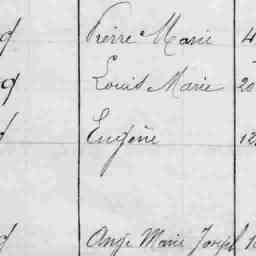 Pierre Marie 4
Louis Marie 20
Eugène 12
Ange Marie Joseph 1